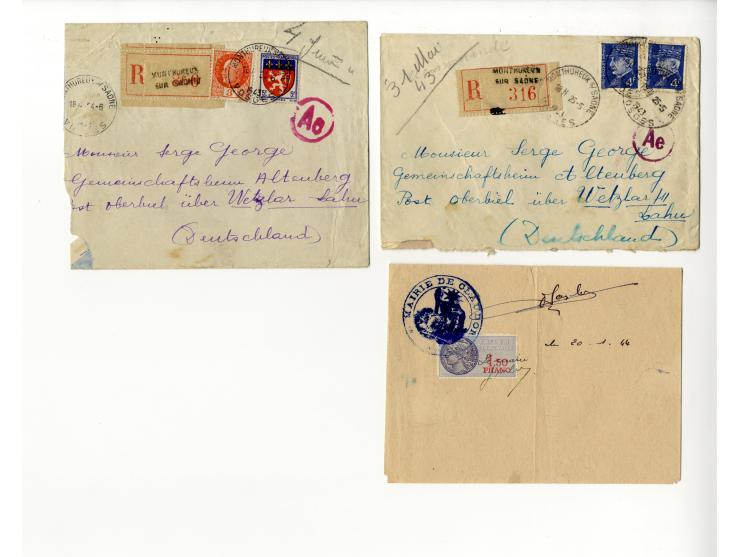 4 Juin
R
MONTHUREUX
SUR SAÔNE
MONTHUREUX S/ SAÔNE
VOSGES
1943
Ae
Monsieur Serge George
Gemeinschaftsheim Altenberg
Post Oberbiel über Wetzlar Lahn
(Deutschland)
31 Mai
43
R
MONTHUREUX
SUR SAÔNE
316
MONTHUREUX S/ SAÔNE
VOSGES
Ae
Monsieur Serge George
Gemeinschaftsheim Altenberg
Post Oberbiel über Wetzlar
Lahn
(Deutschland)
MAIRIE DE
le 20.1.44
1,50
FRANC